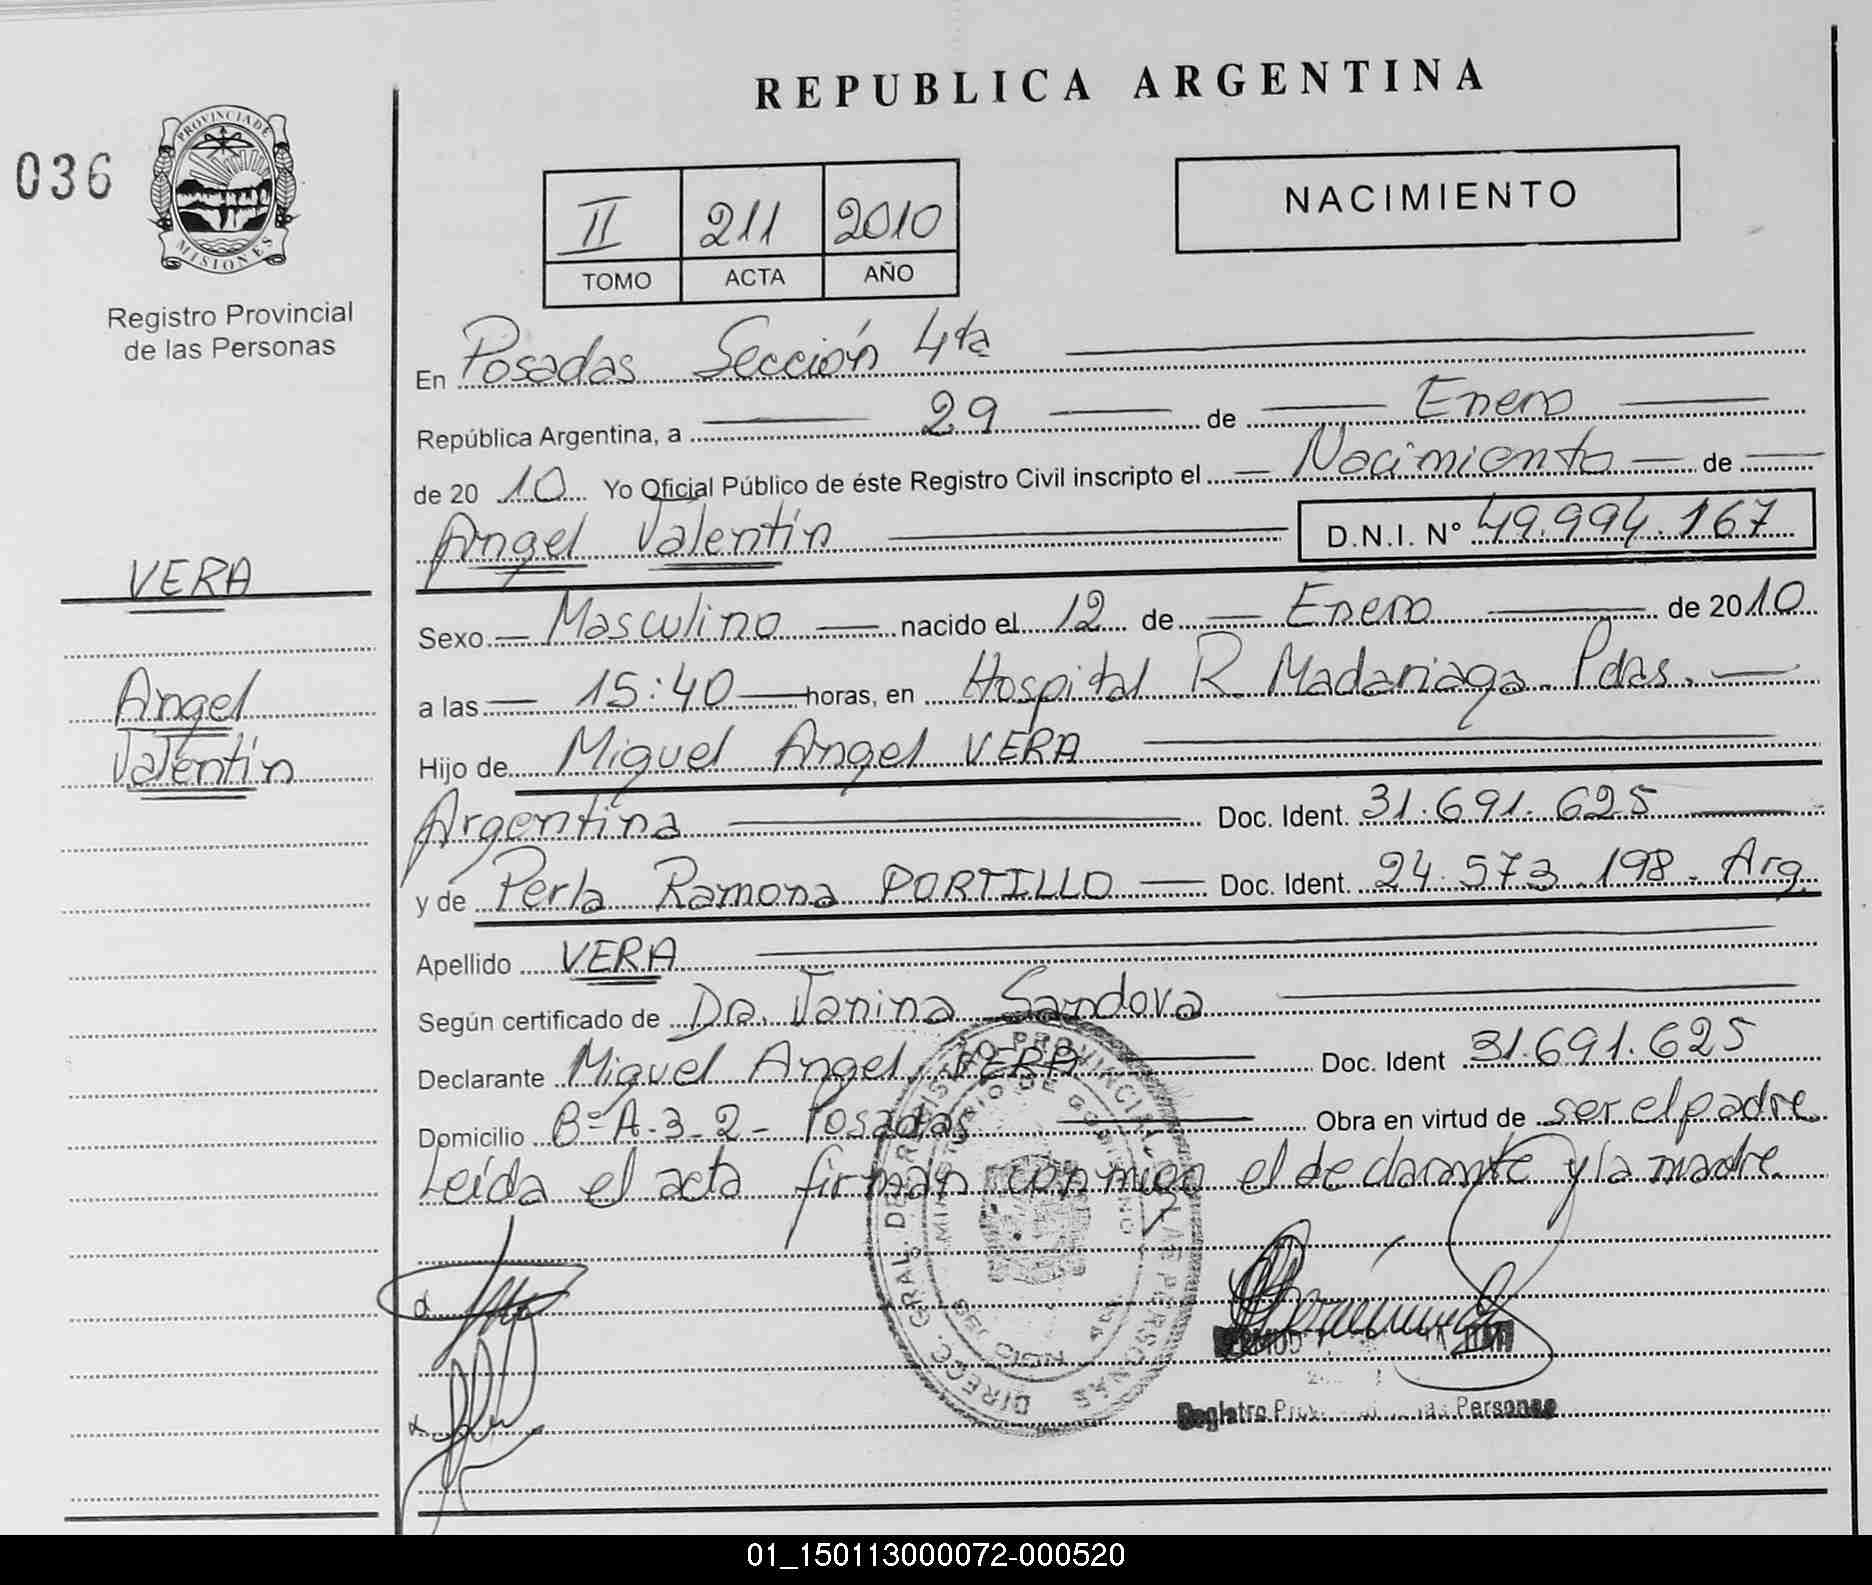 REPUBLICA ARGENTINA
036
PROVINCIA DE
MISIONES
Registro Provincial
de las Personas
NACIMIENTO
II 211 2010
TOMO ACTA AÑO
En Posadas Sección 4ta
República Argentina, a 29 de Enero
de 20 10 Yo Oficial Público de éste Registro Civil inscripto el Nacimiento de
Angel Valentín D.N.I. N° 49.994.167
VERA
Angel
Valentín
Sexo Masculino nacido el 12 de Enero de 2010
a las 15:40 horas, en Hospital R. Madariaga. Pdas.
Hijo de Miguel Angel VERA
Argentina Doc. Ident. 31.691.625
y de Perla Ramona PORTILLO Doc. Ident. 24.573.198. Arg.
Apellido VERA
Según certificado de Da. Janina Sandova
Declarante Miguel Angel VERA Doc. Ident 31.691.625
Domicilio B° A-3-2- Posadas Obra en virtud de ser el padre.
Leída el acta firman conmigo el declarante y la madre.
DIRECC. GRAL. DE REGISTRO PROVINCIAL DE LAS PERSONAS
MINISTERIO DE GOBIERNO
Registro Personas
01_150113000072-000520